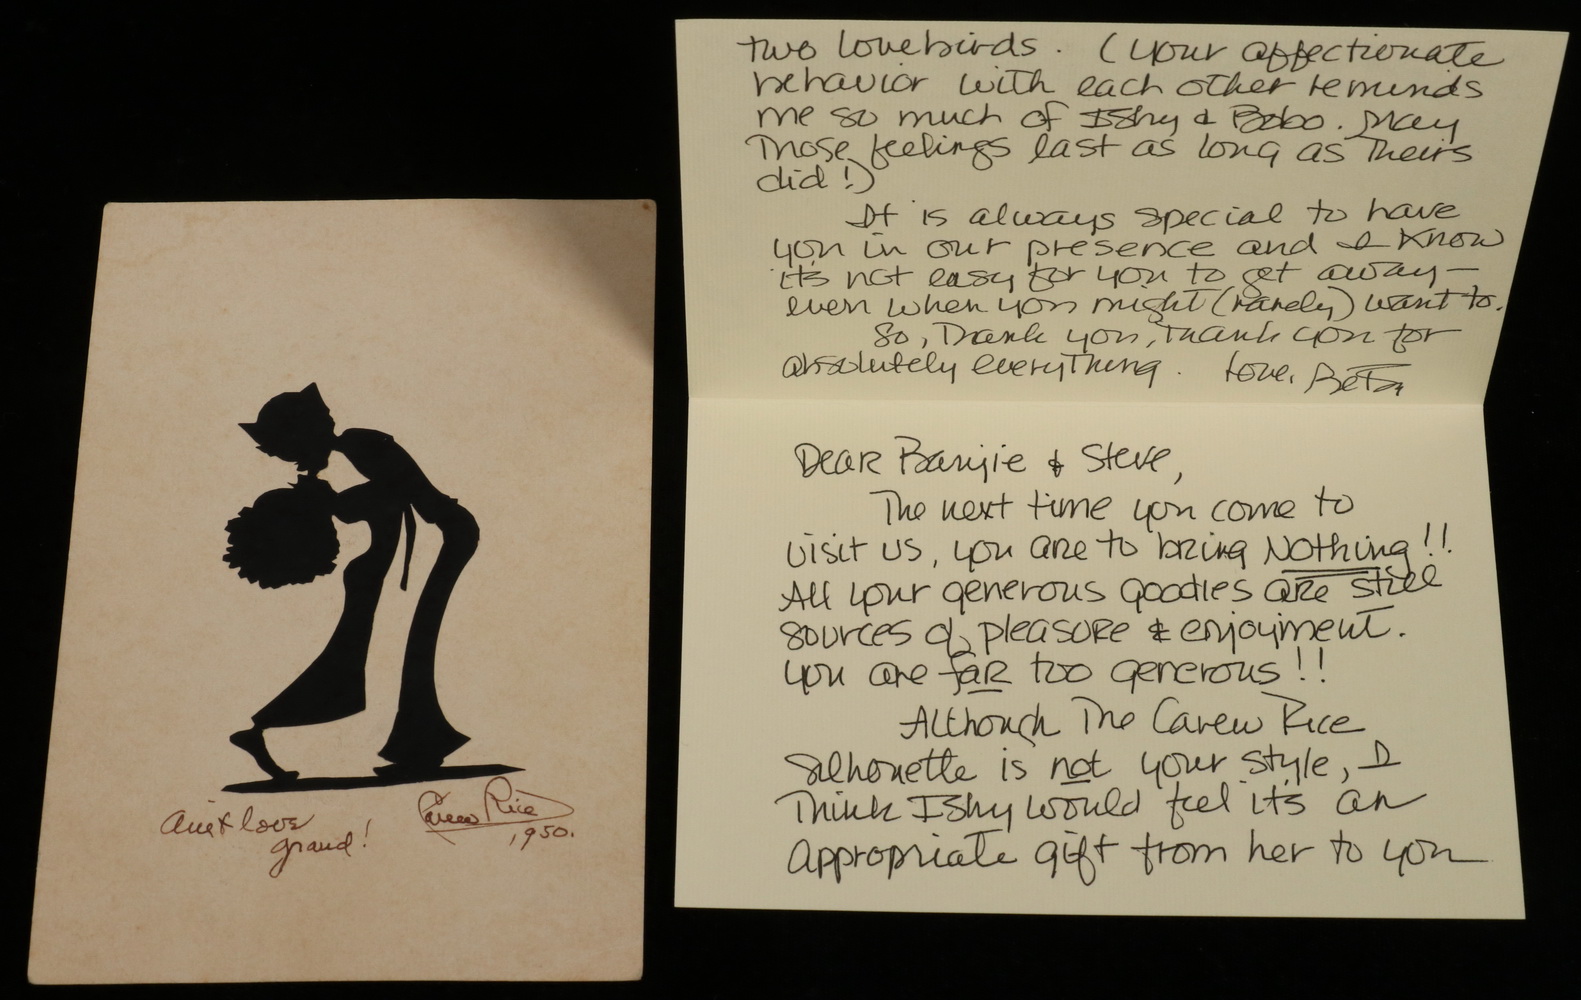 ain't love
grand!
Carew Rice
1950.
Dear Banjie & Steve,
The next time you come to
visit us, you are to bring Nothing!!
All your generous goodies are still
sources of pleasure & enjoyment.
You are far too generous!!
Although The Carew Rice
Silhouette is not your style, I
Think Ishy would feel it's an
appropriate gift from her to you
two lovebirds. (your affectionate
behavior with each other reminds
me so much of Ishy & Bobo. May
Those feelings last as long as Theirs
did!)
It is always special to have
you in our presence and I know
it's not easy for you to get away—
even when you might (rarely) want to.
So, Thank you, Thank you for
absolutely everyThing. Love, Betsy